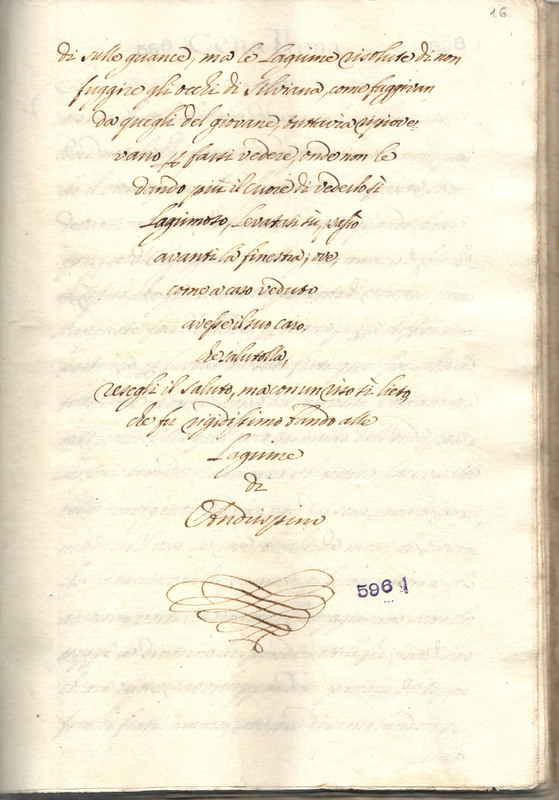 16
di sulle guance, ma le Lagrime risolute di non
fuggire gli occhi di Silviana, come fuggivan
da quegli del giovane, tuttavia
vano fassi vedere, onde non le
dando più il cuore di vederlo sì
Lagrimoso, levatasi sù, passò
avanti la finestra; ove,
come a caso veduto
avesse il suo caro,
che salutolla,
resegli il saluto, ma con un viso sì lieto,
che fu rigidissimo bando alle
Lagrime
di
5961